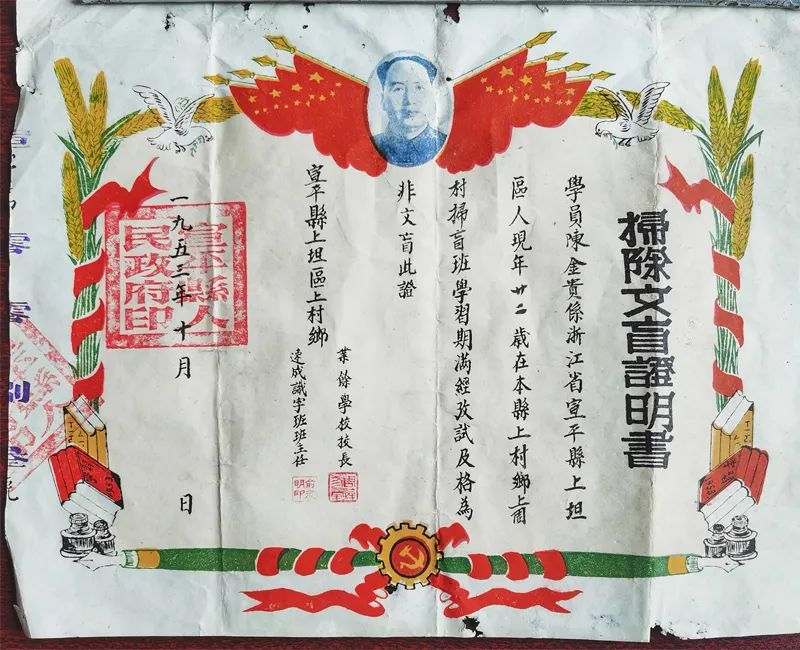 掃除文盲證明書
學員陳金貴係浙江省宣平縣上坦
區人現年廿二歲在本縣上村鄉上
村掃盲班學習期滿經攷試及格為
非文盲此證
宣平縣上坦區上村鄉
業餘學校校長
速成識字班班主任
一九五三年十月 日
宣平縣人民政府印